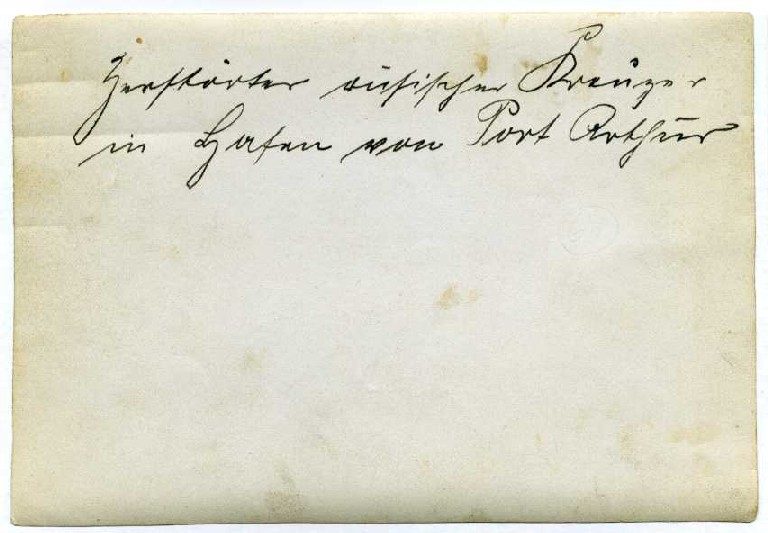 Zerstörter rusischer Kreuzer
in Hafen von Port Arthur